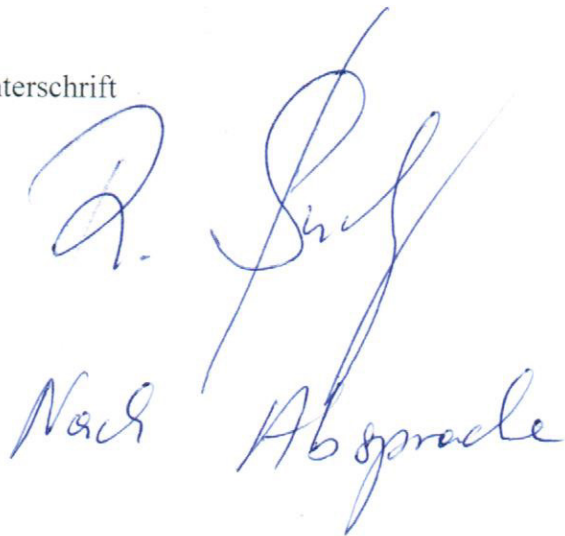 nterschrift
R.
Nach Absprache